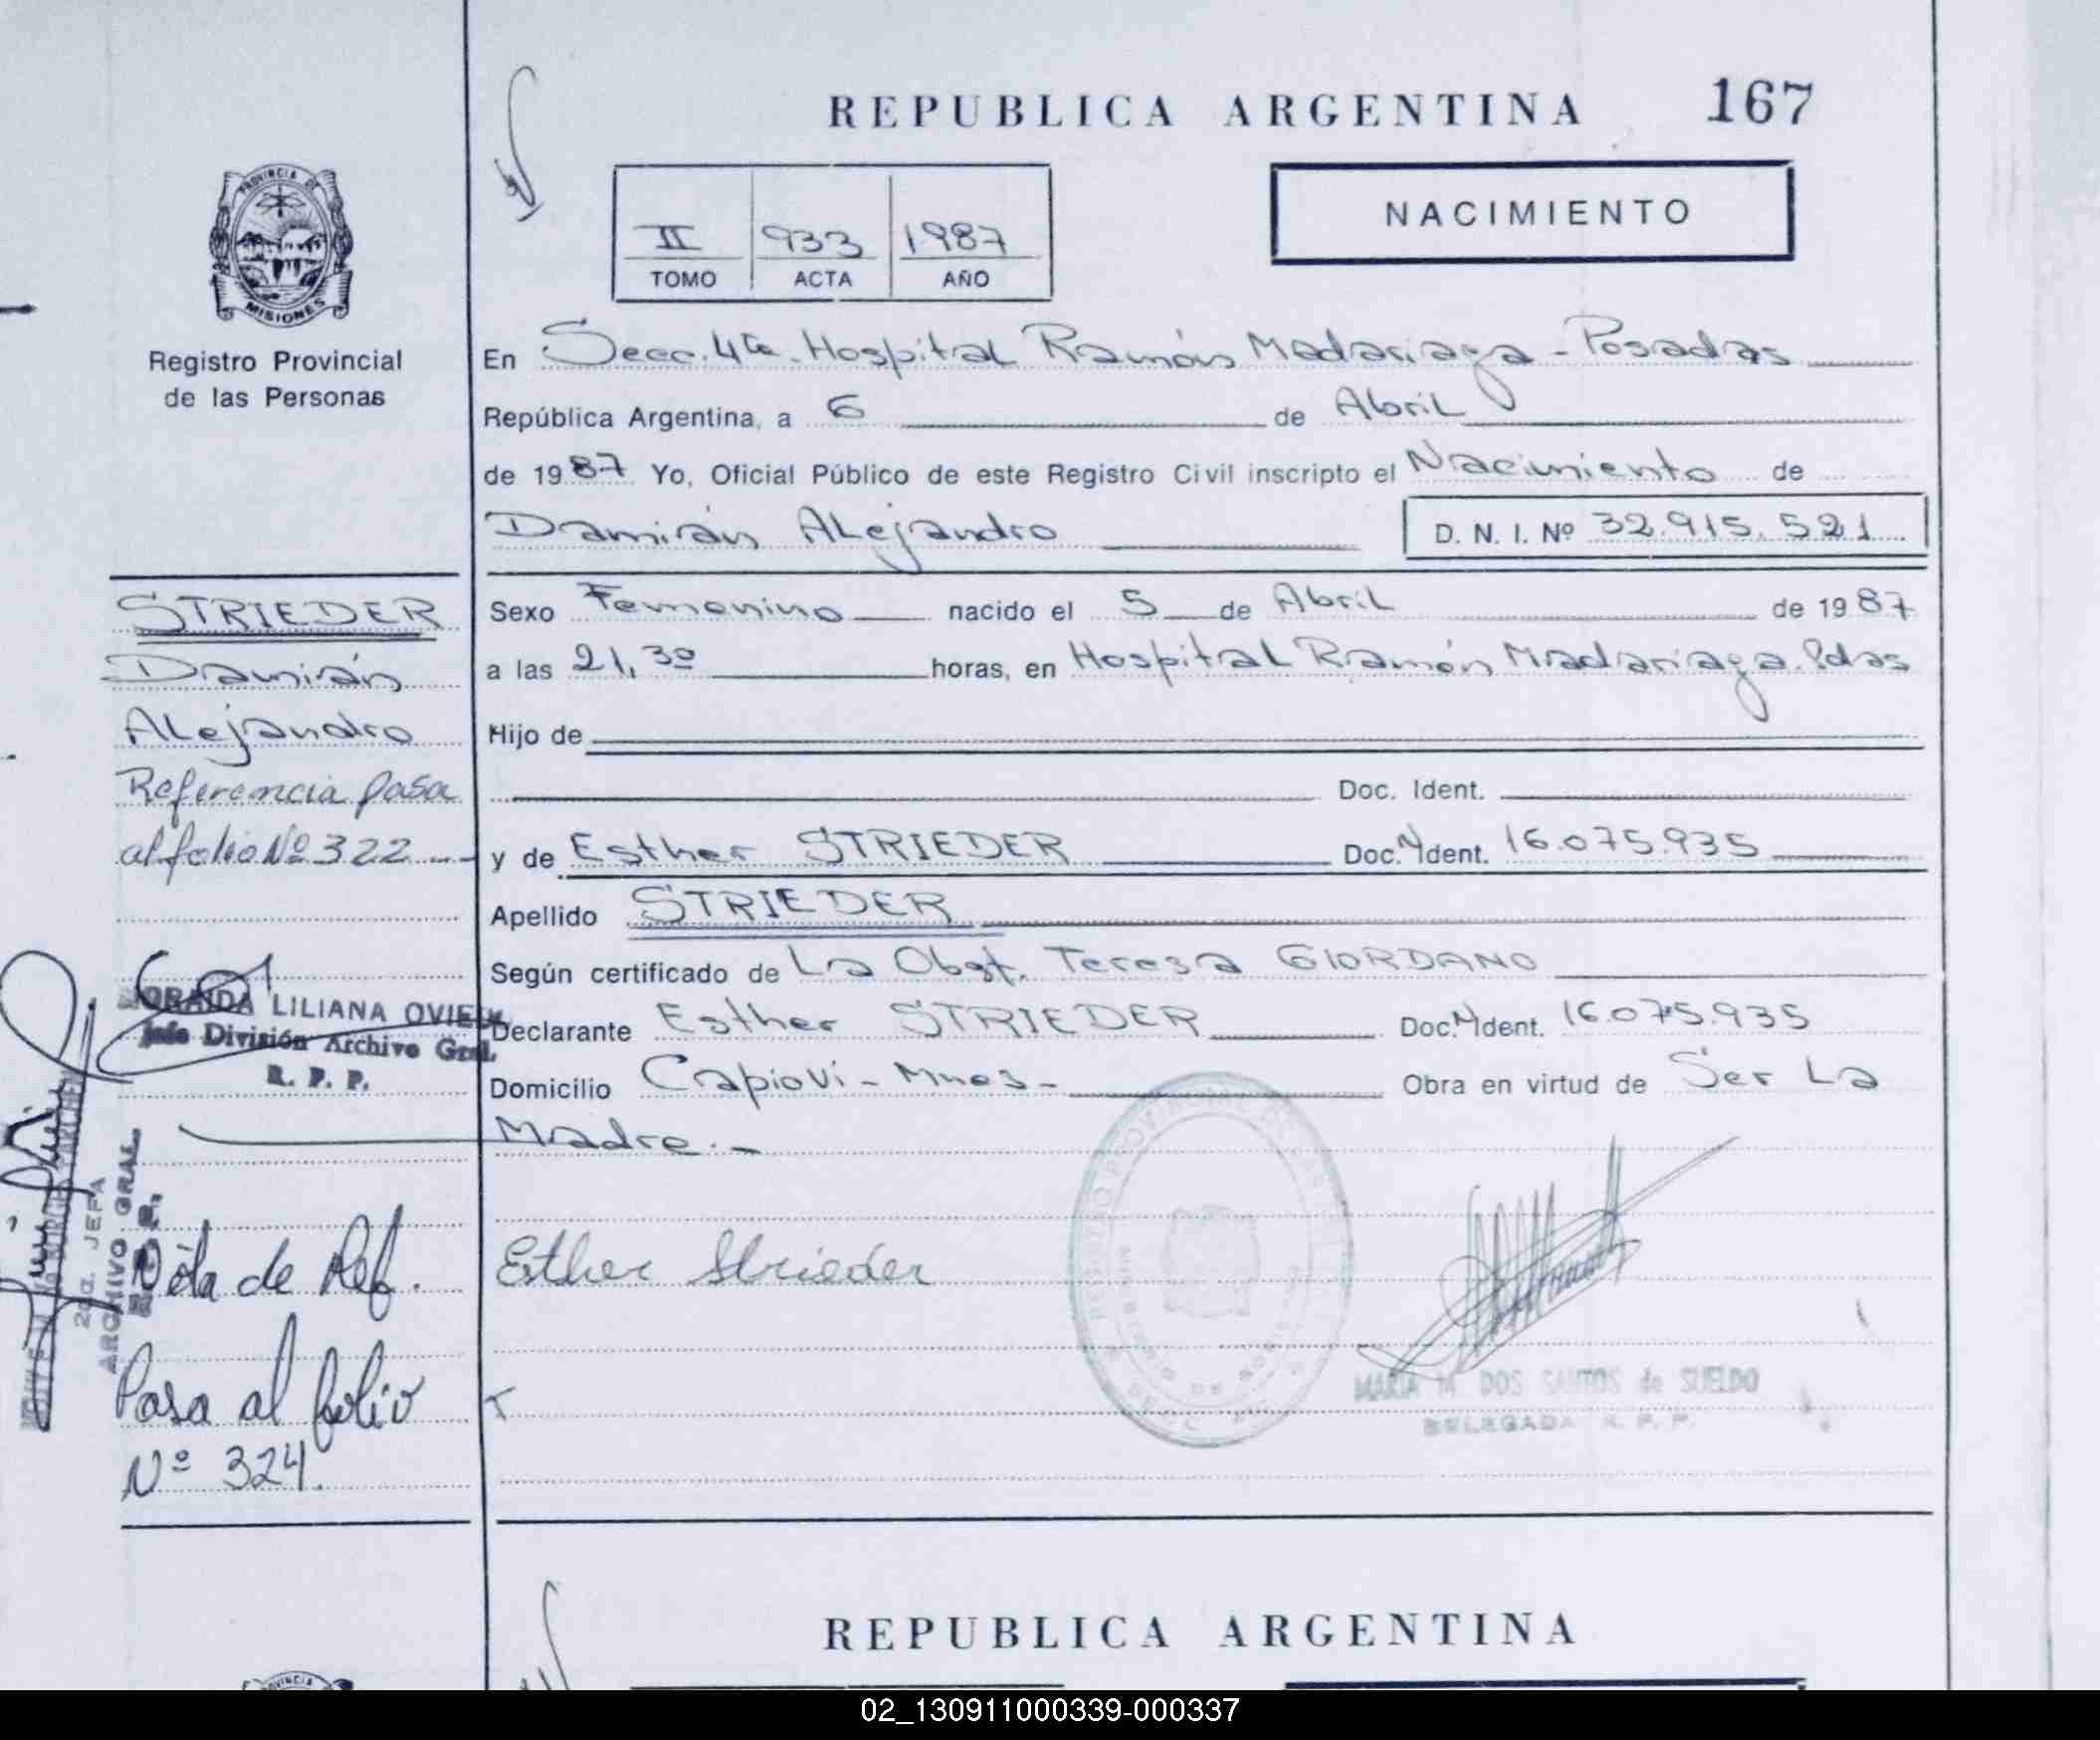 REPUBLICA ARGENTINA 167
PROVINCIA DE
MISIONES
Registro Provincial
de las Personas
NACIMIENTO
II 933 1987
TOMO ACTA AÑO
En Secc. 4ta. Hospital Ramón Madariaga - Posadas
República Argentina, a 6 de Abril
de 1987 Yo, Oficial Público de este Registro Civil inscripto el Nacimiento de
Damián Alejandro D. N. I. Nº 32.915.521
STRIEDER
Damián
Alejandro
Referencia pasa
al folio Nº 322
Sexo Femenino nacido el 5 de Abril de 1987
a las 21,30 horas, en Hospital Ramón Madariaga. Pdas
Hijo de
Doc. Ident.
y de Esther STRIEDER Doc. Ident. 16.075.935
Apellido STRIEDER
Según certificado de La Obst. Teresa GIORDANO
Declarante Esther STRIEDER Doc. Ident. 16.075.935
Domicilio Capioví - Mnes - Obra en virtud de Ser La
Madre.-
LILIANA
Jefe División Archivo Gral.
R. P. P.
2da. JEFA
ARCHIVO GRAL.
Nota de Ref.
Pasa al folio
Nº 324.
Esther Strieder
MARIA M. DOS SANTOS de SUELDO
DELEGADA R. P. P.
REPUBLICA ARGENTINA
02_130911000339-000337